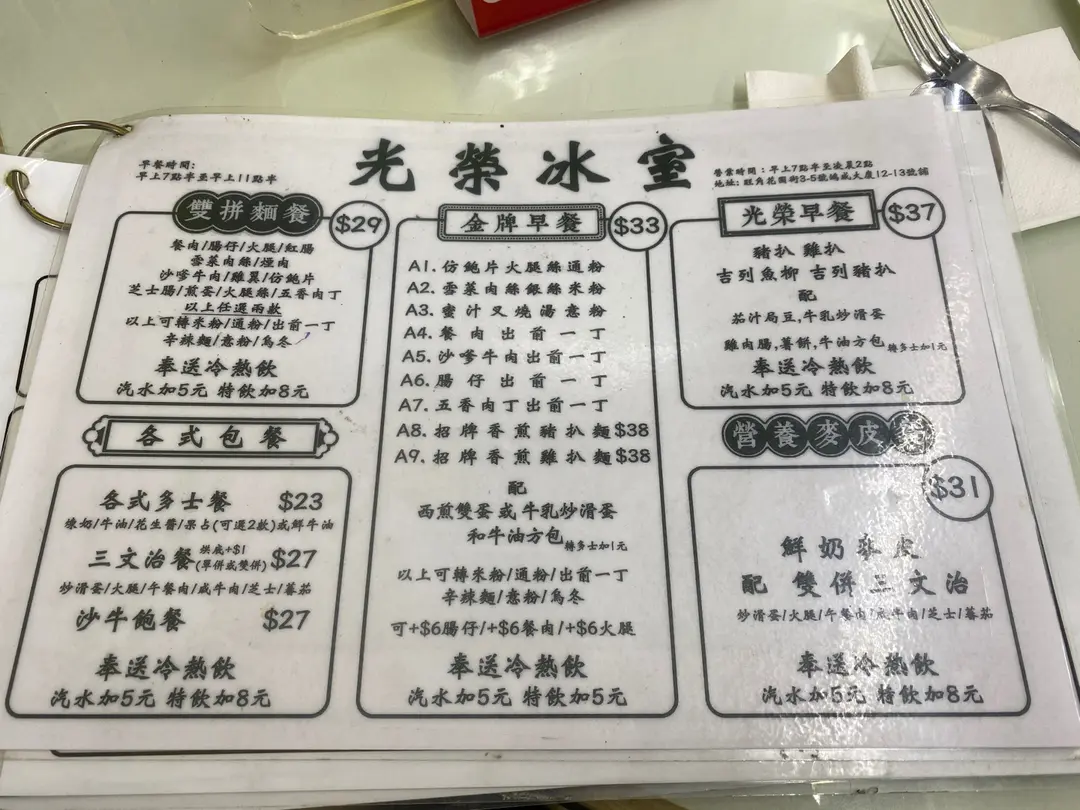 光榮冰室
早餐時間:
早上7點半至早上11點半
營業時間:早上7點半至凌晨2點
地址:旺角花園街3-5號鴻威大廈12-13號鋪
雙拼麵餐 $29
餐肉/腸仔/火腿/紅腸
雪菜肉絲/煙肉
沙嗲牛肉/雞翼/仿鮑片
芝士腸/煎蛋/火腿絲/五香肉丁
以上任選兩款
以上可轉米粉/通粉/出前一丁
辛辣麵/意粉/烏冬
奉送冷熱飲
汽水加5元 特飲加8元
各式包餐
各式多士餐 $23
煉奶/牛油/花生醬/果占(可選2款)或鮮牛油
三文治餐 烘底+$1 (單併或雙併) $27
炒滑蛋/火腿/午餐肉/咸牛肉/芝士/蕃茄
沙牛飽餐 $27
奉送冷熱飲
汽水加5元 特飲加8元
金牌早餐 $33
A1. 仿鮑片火腿絲通粉
A2. 雪菜肉絲銀絲米粉
A3. 蜜汁叉燒湯意粉
A4. 餐肉出前一丁
A5. 沙嗲牛肉出前一丁
A6. 腸仔出前一丁
A7. 五香肉丁出前一丁
A8. 招牌香煎豬扒麵$38
A9. 招牌香煎雞扒麵$38
配
西煎雙蛋或牛乳炒滑蛋
和牛油方包 轉多士加1元
以上可轉米粉/通粉/出前一丁
辛辣麵/意粉/烏冬
可+$6腸仔/+$6餐肉/+$6火腿
奉送冷熱飲
汽水加5元 特飲加5元
光榮早餐 $37
豬扒 雞扒
吉列魚柳 吉列豬扒
配
茄汁局豆,牛乳炒滑蛋
雞肉腸,薯餅,牛油方包 轉多士加1元
奉送冷熱飲
汽水加5元 特飲加8元
營養麥皮餐
$31
鮮奶麥皮
配 雙併三文治
炒滑蛋/火腿/午餐肉/咸牛肉/芝士/蕃茄
奉送冷熱飲
汽水加5元 特飲加8元